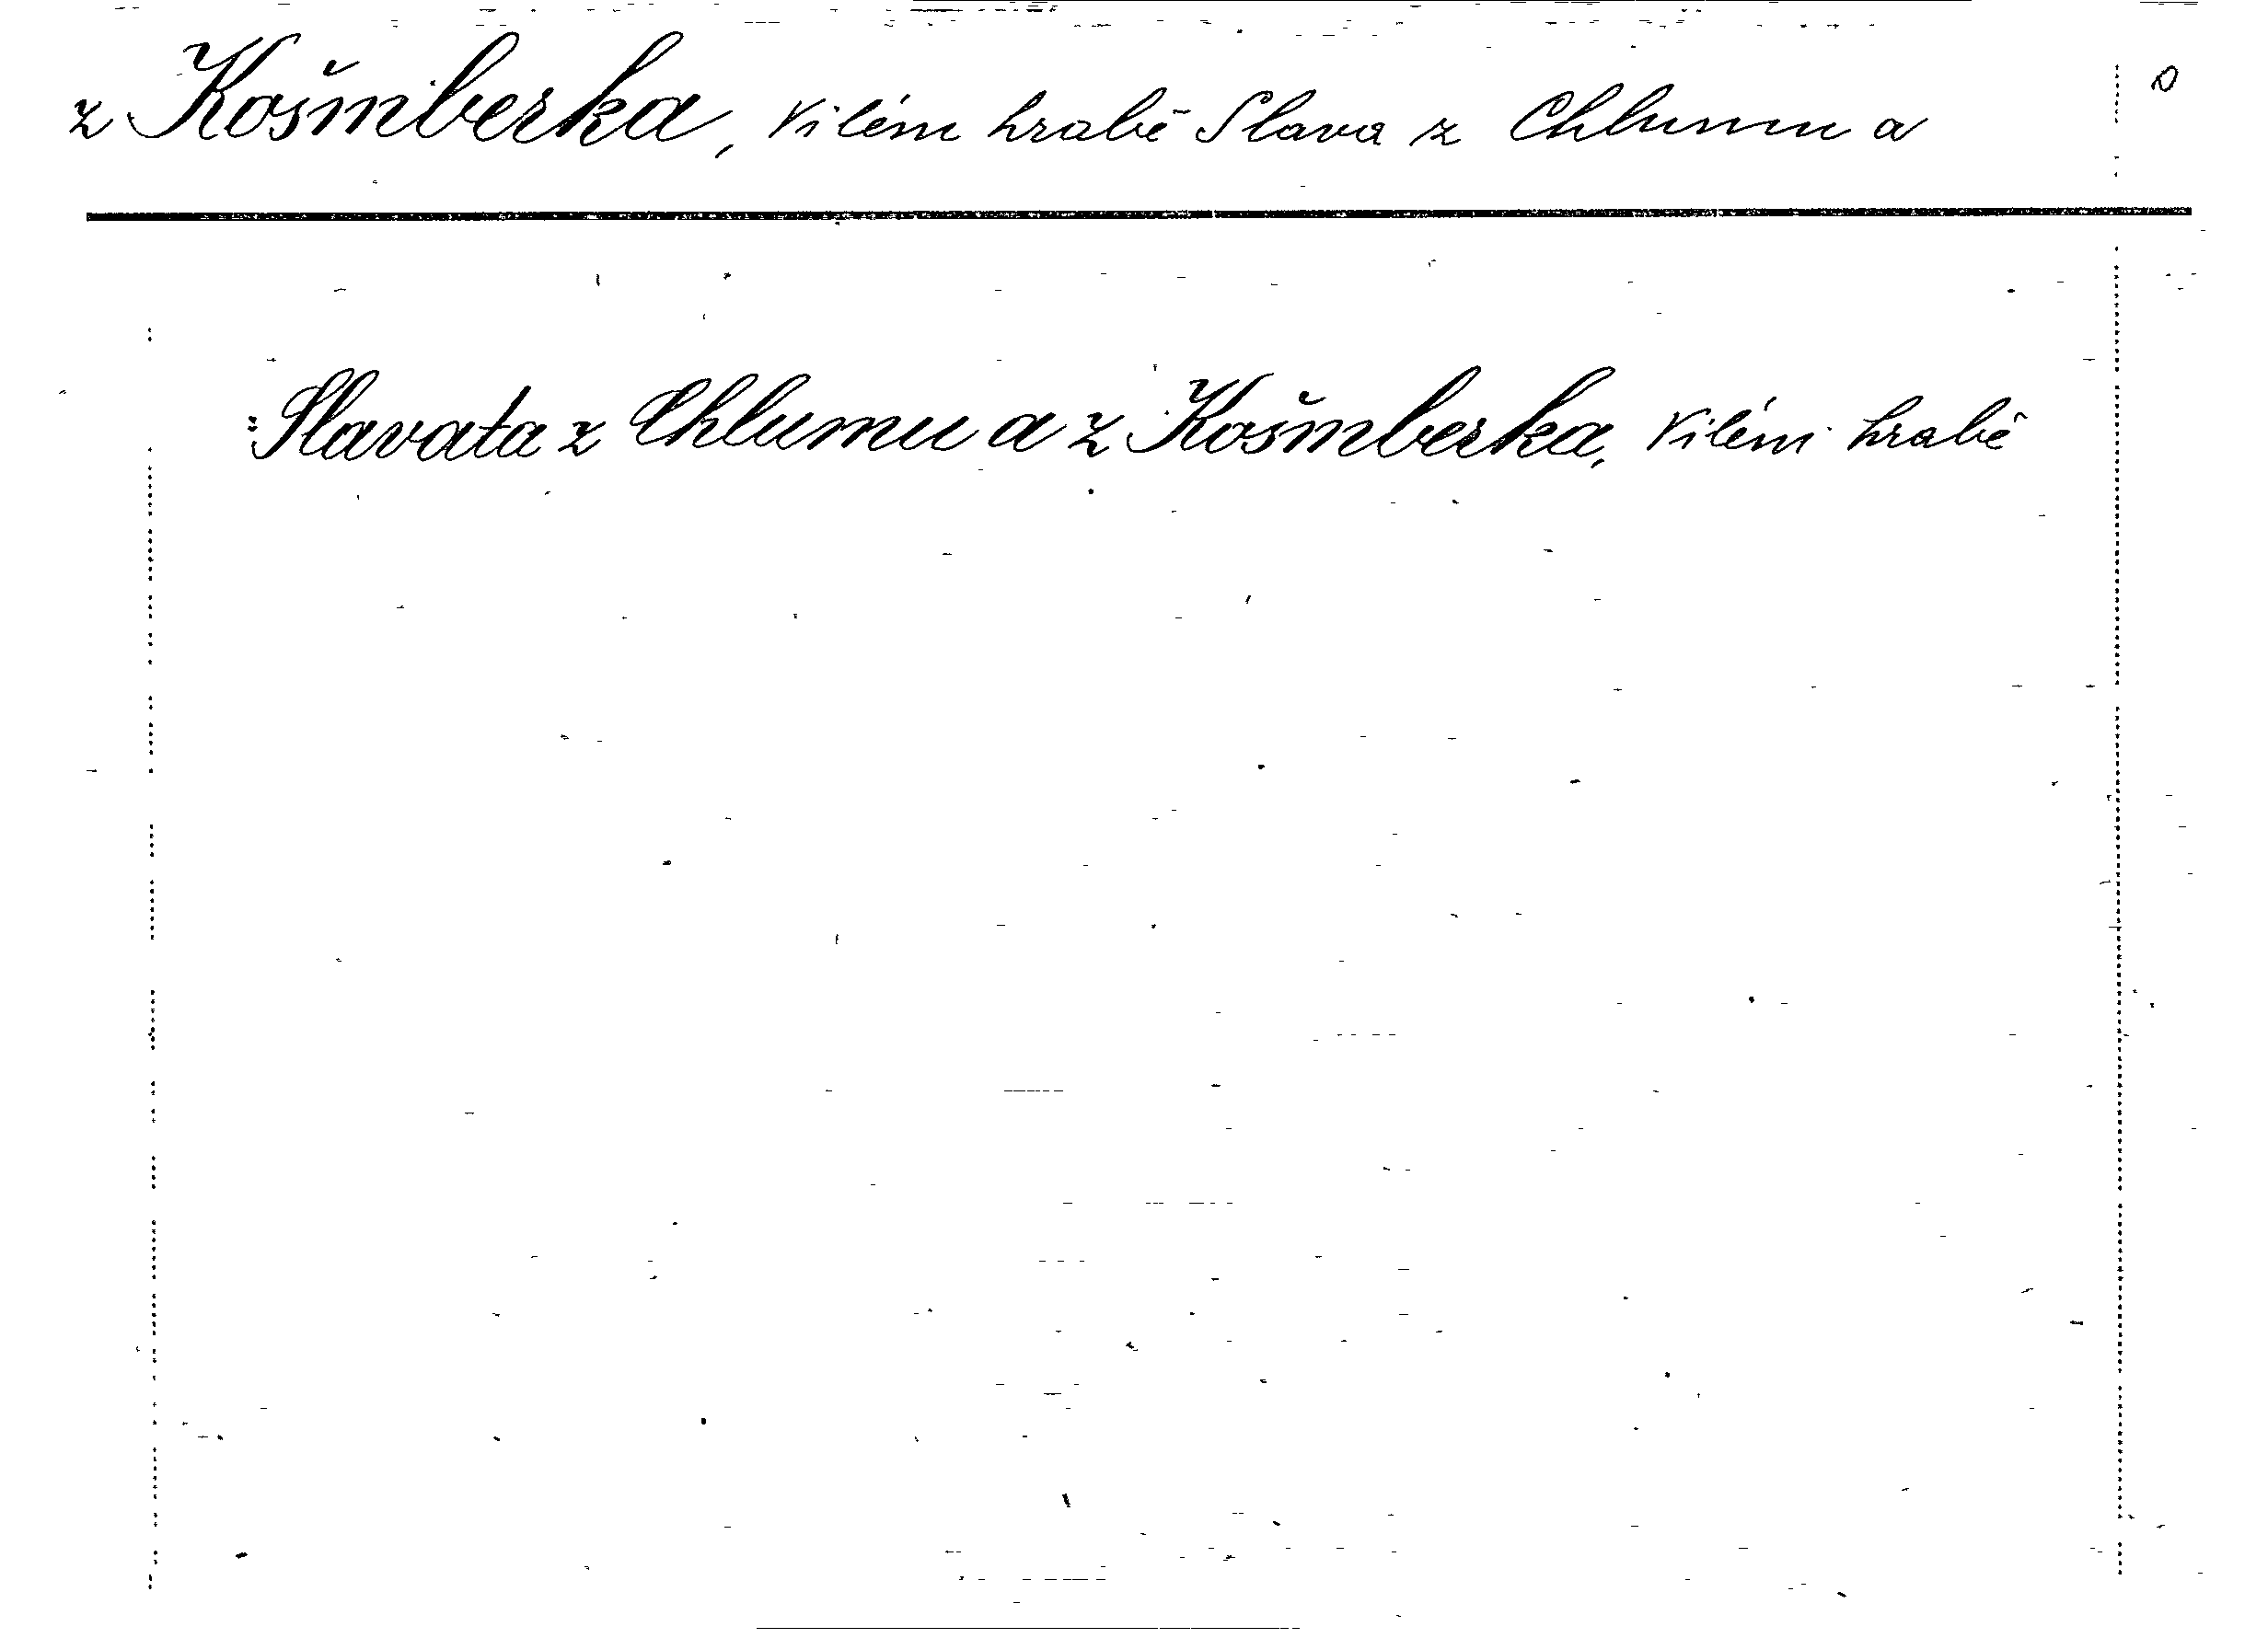 z Košmberka, Vilém hrabě Slava z Chlumu a
:Slavata z Chlumu a z Košmberka, Vilém hrabě